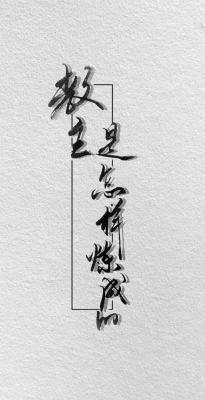 教主是怎样炼成的